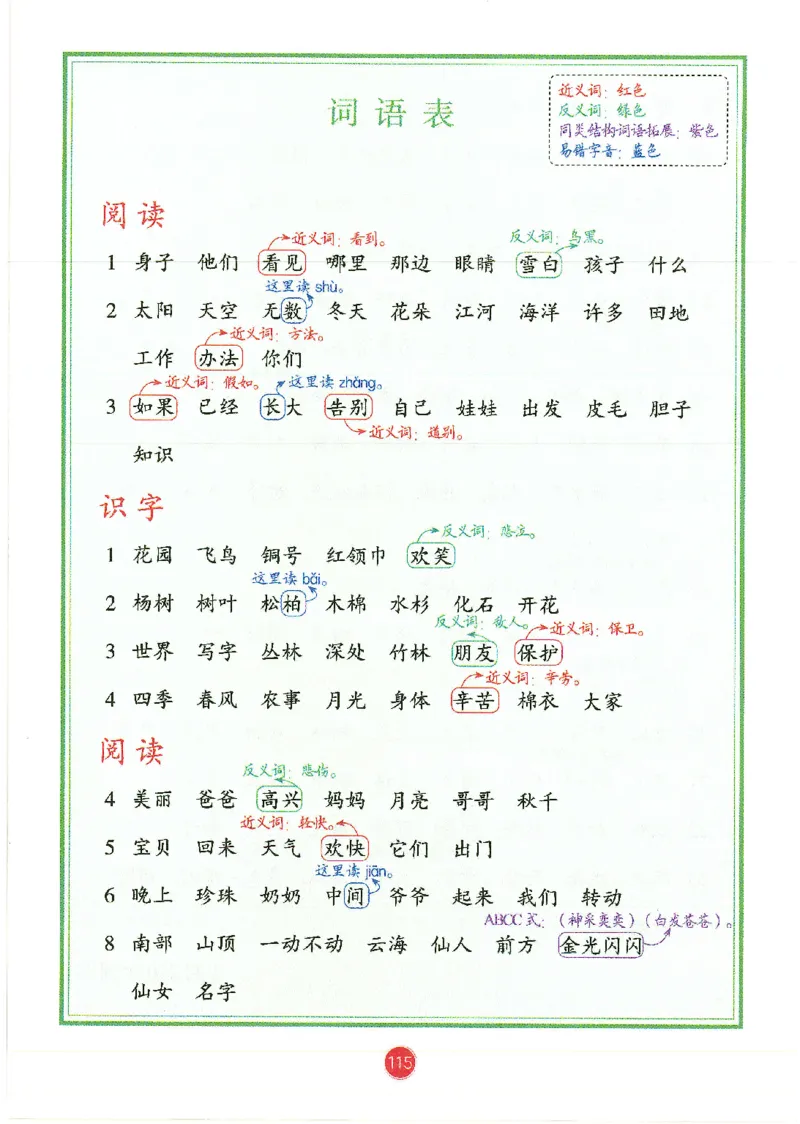 词语表
近义词：红色
反义词：绿色
同类结构词语拓展：紫色
易错字音：蓝色
阅读
近义词：看到。 反义词：乌黑。
1 身子 他们 看见 哪里 那边 眼睛 雪白 孩子 什么
这里读 shù。
2 太阳 天空 无数 冬天 花朵 江河 海洋 许多 田地
近义词：方法。
工作 办法 你们
近义词：假如。 这里读 zhǎng。
3 如果 已经 长大 告别 自己 娃娃 出发 皮毛 胆子
近义词：道别。
知识
识字
反义词：悲泣。
1 花园 飞鸟 铜号 红领巾 欢笑
这里读 bǎi。
2 杨树 树叶 松柏 木棉 水杉 化石 开花
反义词：敌人。 近义词：保卫。
3 世界 写字 丛林 深处 竹林 朋友 保护
近义词：辛劳。
4 四季 春风 农事 月光 身体 辛苦 棉衣 大家
阅读
反义词：悲伤。
4 美丽 爸爸 高兴 妈妈 月亮 哥哥 秋千
近义词：轻快。
5 宝贝 回来 天气 欢快 它们 出门
这里读 jiān。
6 晚上 珍珠 奶奶 中间 爷爷 起来 我们 转动
ABCC 式：（神采奕奕）（白发苍苍）。
8 南部 山顶 一动不动 云海 仙人 前方 金光闪闪
仙女 名字
115